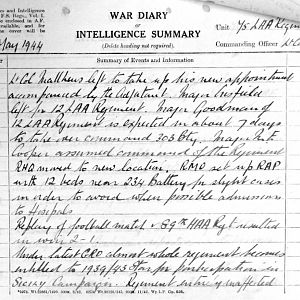 WAR DIARY
or
INTELLIGENCE SUMMARY
(Delete heading not required).
Unit 1/5 LAA Regim
Commanding Officer Lt Co
F.S. Regs., Vol. I.
May 1944
Summary of Events and Information
Lt Col Matthews left to take up his new appointment
accompanied by the Adjutant. Major
left for 12 LAA Regiment. Major Goodman of
12 LAA Regiment is expected in about 7 days
to take over command 303 Bty. Major
Cooper assumed command of the Regiment
RHQ moved to new location. RMO set up RAP
with 12 beds near 234 Battery for slight cases
in order to avoid when possible admission
to Hospitals
Replay of football match v 89th HAA Rgt resulted
in win 2-1.
Under latest GRO almost whole regiment becomes
entitled to 1939/43 Star for participation in
Sicily Campaign. Regiment mainly unaffected